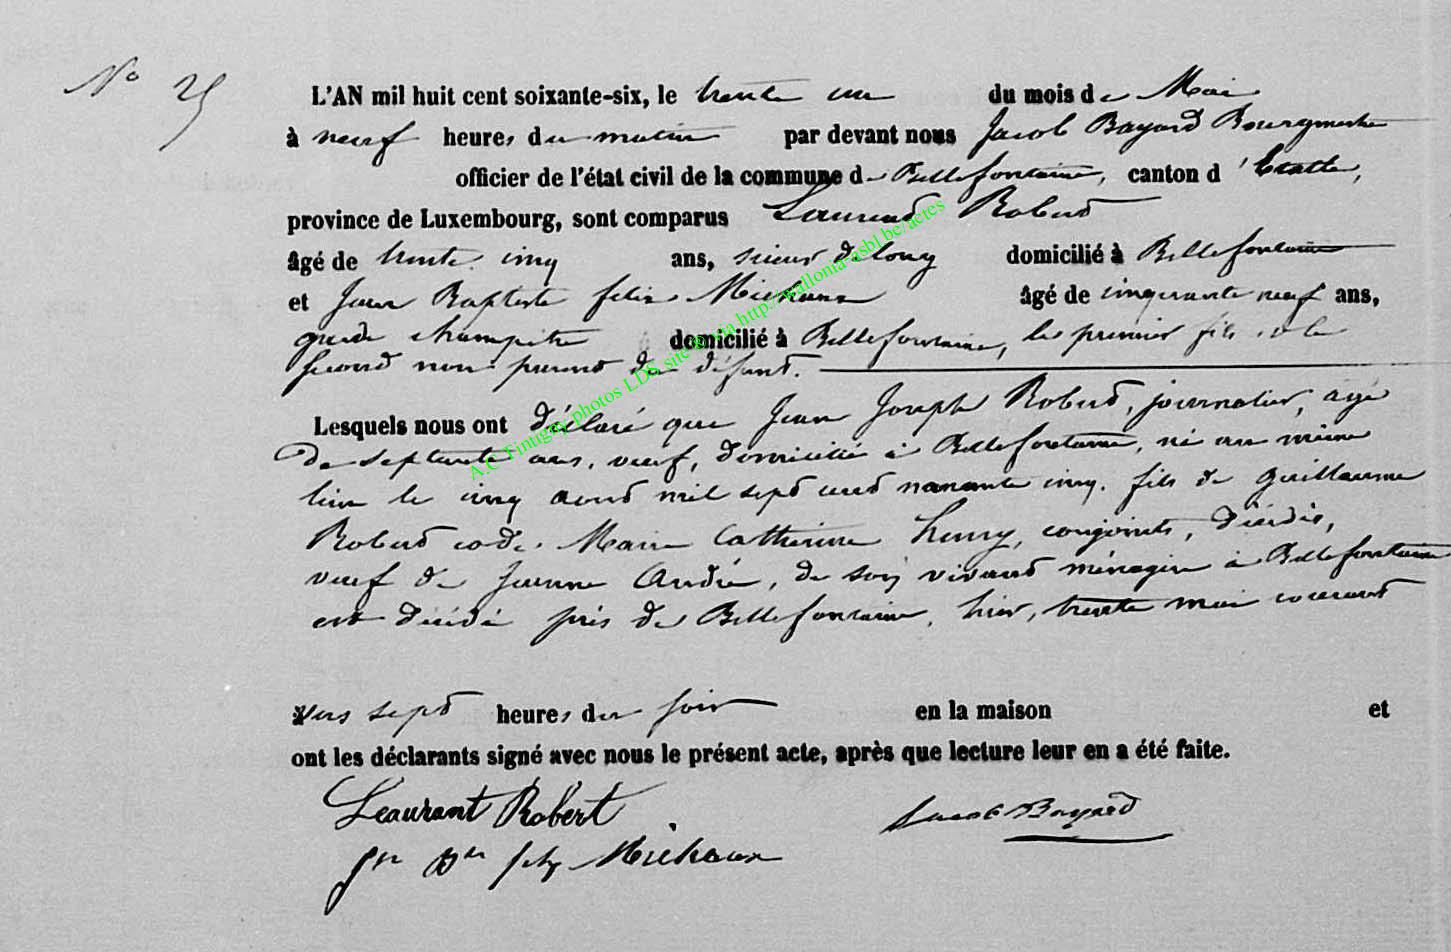 No 25
L'AN mil huit cent soixante-six, le trente un du mois de Mai
à neuf heures du matin par devant nous Jacob Bayard Bourgmestre
officier de l'état civil de la commune de Bellefontaine, canton d'Etalle,
province de Luxembourg, sont comparus Laurent Robert
âgé de trente cinq ans, scieur de long domicilié à Bellefontaine
et Jean Baptiste felix Michaux âgé de cinquante neuf ans,
garde champetre domicilié à Bellefontaine, le premier fils et le
second non parent du défunt.
Lesquels nous ont déclaré que Jean Joseph Robert, journalier, agé
de septante ans, veuf, domicilié à Bellefontaine, né au même
lieu le cinq aout mil sept cent nonante cinq. fils de guillaume
Robert et de Marie Catherine henry, conjoints, décédés,
veuf de Jeanne André, de son vivant ménagère à Bellefontaine
est décédé près de Bellefontaine, hier, trente mai courant
vers sept heures du soir en la maison et
ont les déclarants signé avec nous le présent acte, après que lecture leur en a été faite.
Leaurant Robert Jacob Bayard
Jn Bte felix Michaux
A.C Tintigny photos LDS site via http://wallonia-asbl.be/actes